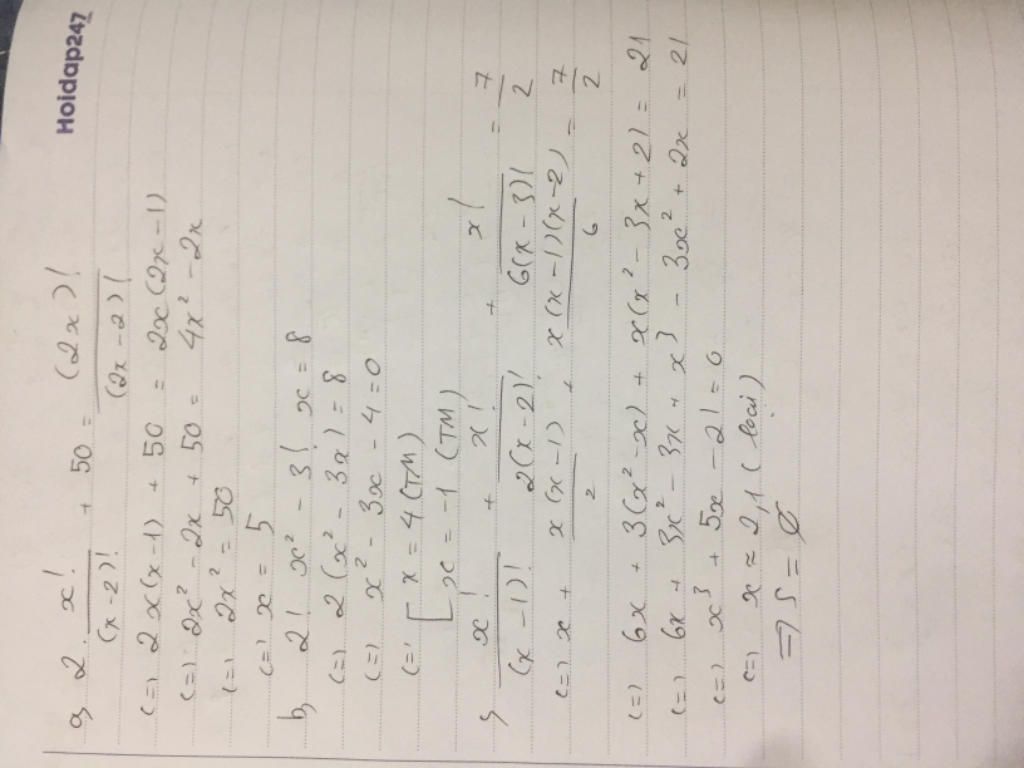 Hoidap247
a, 2. x!/(x-2)! + 50 = (2x)!/(2x-2)!
(=) 2x(x-1) + 50 = 2x(2x-1)
(=) 2x² - 2x + 50 = 4x² - 2x
(=) 2x² = 50
(=) x = 5
b, 2! x² - 3! x = 8
(=) 2(x² - 3x) = 8
(=) x² - 3x - 4 = 0
(=) [ x = 4 (TM)
x = -1 (TM)
c, x!/(x-1)! + x!/2(x-2)! + x!/6(x-3)! = 7/2
(=) x + x(x-1)/2 + x(x-1)(x-2)/6 = 7/2
(=) 6x + 3(x² - x) + x(x² - 3x + 2) = 21
(=) 6x + 3x² - 3x + x³ - 3x² + 2x = 21
(=) x³ + 5x - 21 = 0
(=) x ≈ 2,1 (loại)
=> S = ∅